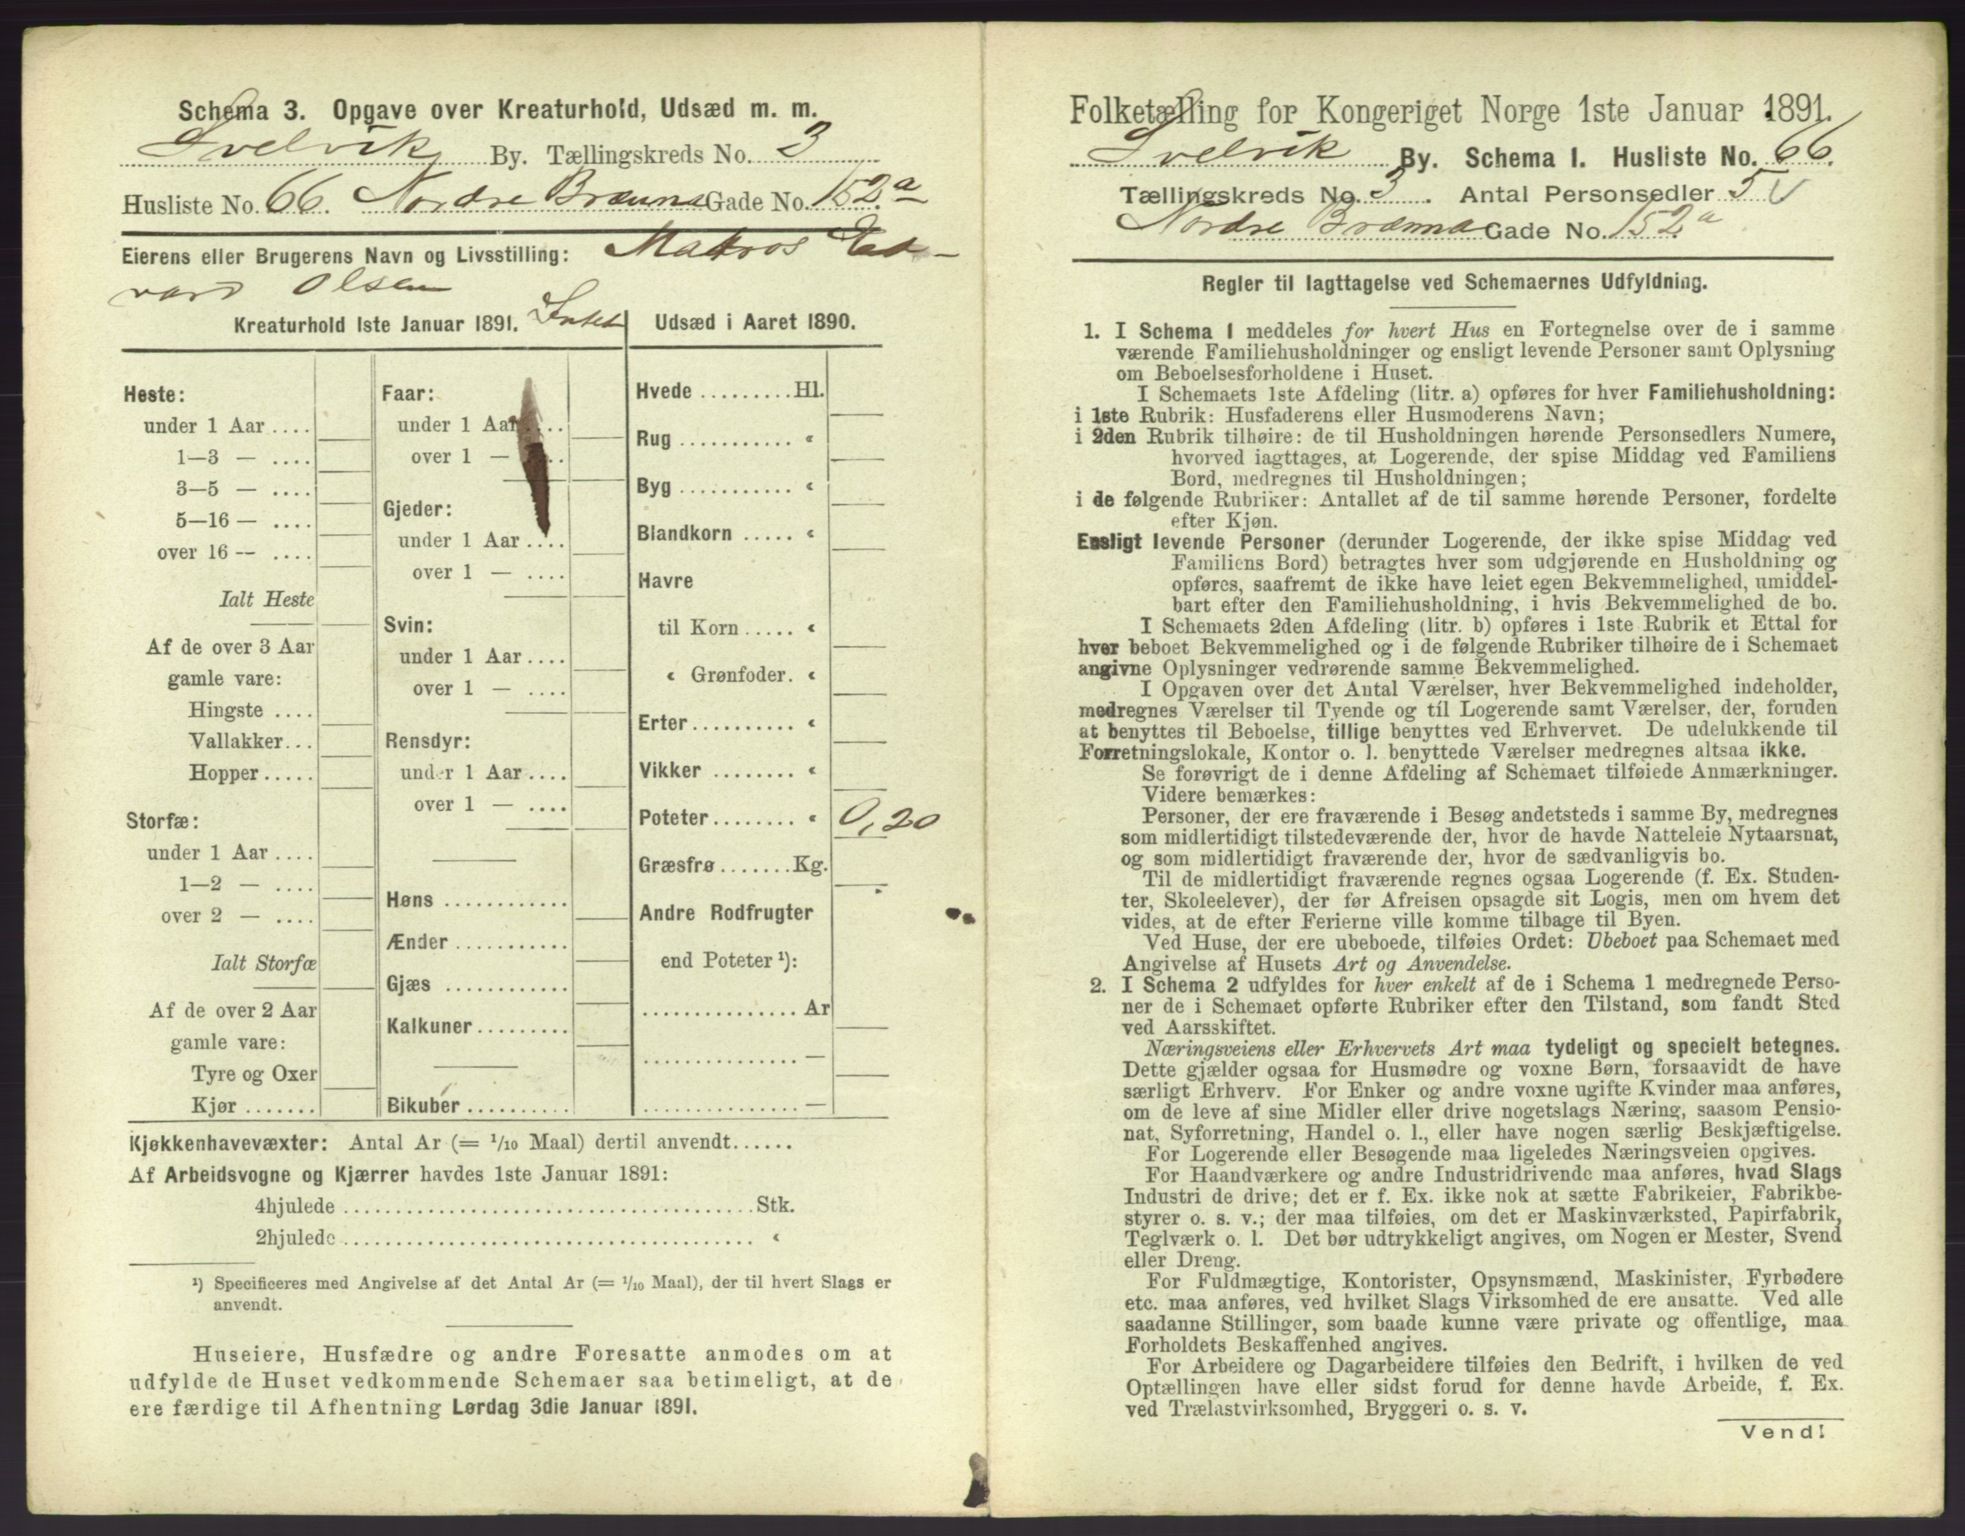 Schema 3. Opgave over Kreaturhold, Udsæd m. m.
Svelvik By. Tællingskreds No. 3
Husliste No. 66. Nordre Brænna Gade No. 152a
Eierens eller Brugerens Navn og Livsstilling: Matros Ed-
vard Olsen
Kreaturhold 1ste Januar 1891. Intet
Heste:
under 1 Aar ....
1—3 — ....
3—5 — ....
5—16 — ....
over 16 — ....
Ialt Heste
Af de over 3 Aar
gamle vare:
Hingste ....
Vallakker...
Hopper.....
Storfæ:
under 1 Aar ....
1—2 — ....
over 2 — ....
Ialt Storfæ
Af de over 2 Aar
gamle vare:
Tyre og Oxer
Kjør .......
Faar:
under 1 Aar ....
over 1 — ....
Gjeder:
under 1 Aar ....
over 1 — ....
Svin:
under 1 Aar ....
over 1 — ....
Rensdyr:
under 1 Aar ....
over 1 — ....
Høns ............
Ænder ...........
Gjæs ............
Kalkuner.........
Bikuber ..........
Udsæd i Aaret 1890.
Hvede .........Hl.
Rug ........... «
Byg ........... «
Blandkorn ..... «
Havre
til Korn ..... «
« Grønfoder. «
Erter.......... «
Vikker ........ «
Poteter........ « 0,20
Græsfrø .......Kg.
Andre Rodfrugter
end Poteter ¹):
............... Ar
............... —
............... —
Kjøkkenhavevæxter: Antal Ar (= 1/10 Maal) dertil anvendt......
Af Arbeidsvogne og Kjærrer havdes 1ste Januar 1891:
4hjulede ........................................Stk.
2hjulede ........................................ «
¹) Specificeres med Angivelse af det Antal Ar (= 1/10 Maal), der til hvert Slags er
anvendt.
Huseiere, Husfædre og andre Foresatte anmodes om at
udfylde de Huset vedkommende Schemaer saa betimeligt, at de
ere færdige til Afhentning Lørdag 3die Januar 1891.
Folketælling for Kongeriget Norge 1ste Januar 1891.
Svelvik By. Schema 1. Husliste No. 66.
Tællingskreds No. 3. Antal Personsedler 5 √
Nordre Brænna Gade No. 152a
Regler til Iagttagelse ved Schemaernes Udfyldning.
1. I Schema 1 meddeles for hvert Hus en Fortegnelse over de i samme
værende Familiehusholdninger og ensligt levende Personer samt Oplysning
om Beboelsesforholdene i Huset.
I Schemaets 1ste Afdeling (litr. a) opføres for hver Familiehusholdning:
i 1ste Rubrik: Husfaderens eller Husmoderens Navn;
i 2den Rubrik tilhøire: de til Husholdningen hørende Personsedlers Numere,
hvorved iagttages, at Logerende, der spise Middag ved Familiens
Bord, medregnes til Husholdningen;
i de følgende Rubriker: Antallet af de til samme hørende Personer, fordelte
efter Kjøn.
Ensligt levende Personer (derunder Logerende, der ikke spise Middag ved
Familiens Bord) betragtes hver som udgjørende en Husholdning og
opføres, saafremt de ikke have leiet egen Bekvemmelighed, umiddel-
bart efter den Familiehusholdning, i hvis Bekvemmelighed de bo.
I Schemaets 2den Afdeling (litr. b) opføres i 1ste Rubrik et Ettal for
hver beboet Bekvemmelighed og i de følgende Rubriker tilhøire de i Schemaet
angivne Oplysninger vedrørende samme Bekvemmelighed.
I Opgaven over det Antal Værelser, hver Bekvemmelighed indeholder,
medregnes Værelser til Tyende og til Logerende samt Værelser, der, foruden
at benyttes til Beboelse, tillige benyttes ved Erhvervet. De udelukkende til
Forretningslokale, Kontor o. l. benyttede Værelser medregnes altsaa ikke.
Se forøvrigt de i denne Afdeling af Schemaet tilføiede Anmærkninger.
Videre bemærkes:
Personer, der ere fraværende i Besøg andetsteds i samme By, medregnes
som midlertidigt tilstedeværende der, hvor de havde Natteleie Nytaarsnat,
og som midlertidigt fraværende der, hvor de sædvanligvis bo.
Til de midlertidigt fraværende regnes ogsaa Logerende (f. Ex. Studen-
ter, Skoleelever), der før Afreisen opsagde sit Logis, men om hvem det
vides, at de efter Ferierne ville komme tilbage til Byen.
Ved Huse, der ere ubeboede, tilføies Ordet: Ubeboet paa Schemaet med
Angivelse af Husets Art og Anvendelse.
2. I Schema 2 udfyldes for hver enkelt af de i Schema 1 medregnede Perso-
ner de i Schemaet opførte Rubriker efter den Tilstand, som fandt Sted
ved Aarsskiftet.
Næringsveiens eller Erhvervets Art maa tydeligt og specielt betegnes.
Dette gjælder ogsaa for Husmødre og voxne Børn, forsaavidt de have
særligt Erhverv. For Enker og andre voxne ugifte Kvinder maa anføres,
om de leve af sine Midler eller drive nogetslags Næring, saasom Pensio-
nat, Syforretning, Handel o. l., eller have nogen særlig Beskjæftigelse.
For Logerende eller Besøgende maa ligeledes Næringsveien opgives.
For Haandværkere og andre Industridrivende maa anføres, hvad Slags
Industri de drive; det er f. Ex. ikke nok at sætte Fabrikeier, Fabrikbe-
styrer o. s. v.; der maa tilføies, om det er Maskinværksted, Papirfabrik,
Teglværk o. l. Det bør udtrykkeligt angives, om Nogen er Mester, Svend
eller Dreng.
For Fuldmægtige, Kontorister, Opsynsmænd, Maskinister, Fyrbødere
etc. maa anføres, ved hvilket Slags Virksomhed de ere ansatte. Ved alle
saadanne Stillinger, som baade kunne være private og offentlige, maa
Forholdets Beskaffenhed angives.
For Arbeidere og Dagarbeidere tilføies den Bedrift, i hvilken de ved
Optællingen have eller sidst forud for denne havde Arbeide, f. Ex.
ved Trælastvirksomhed, Bryggeri o. s. v.
Vend!